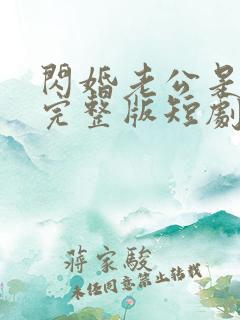 閃婚老公是
完整版短劇
蔣家駿
未经同意禁止转载